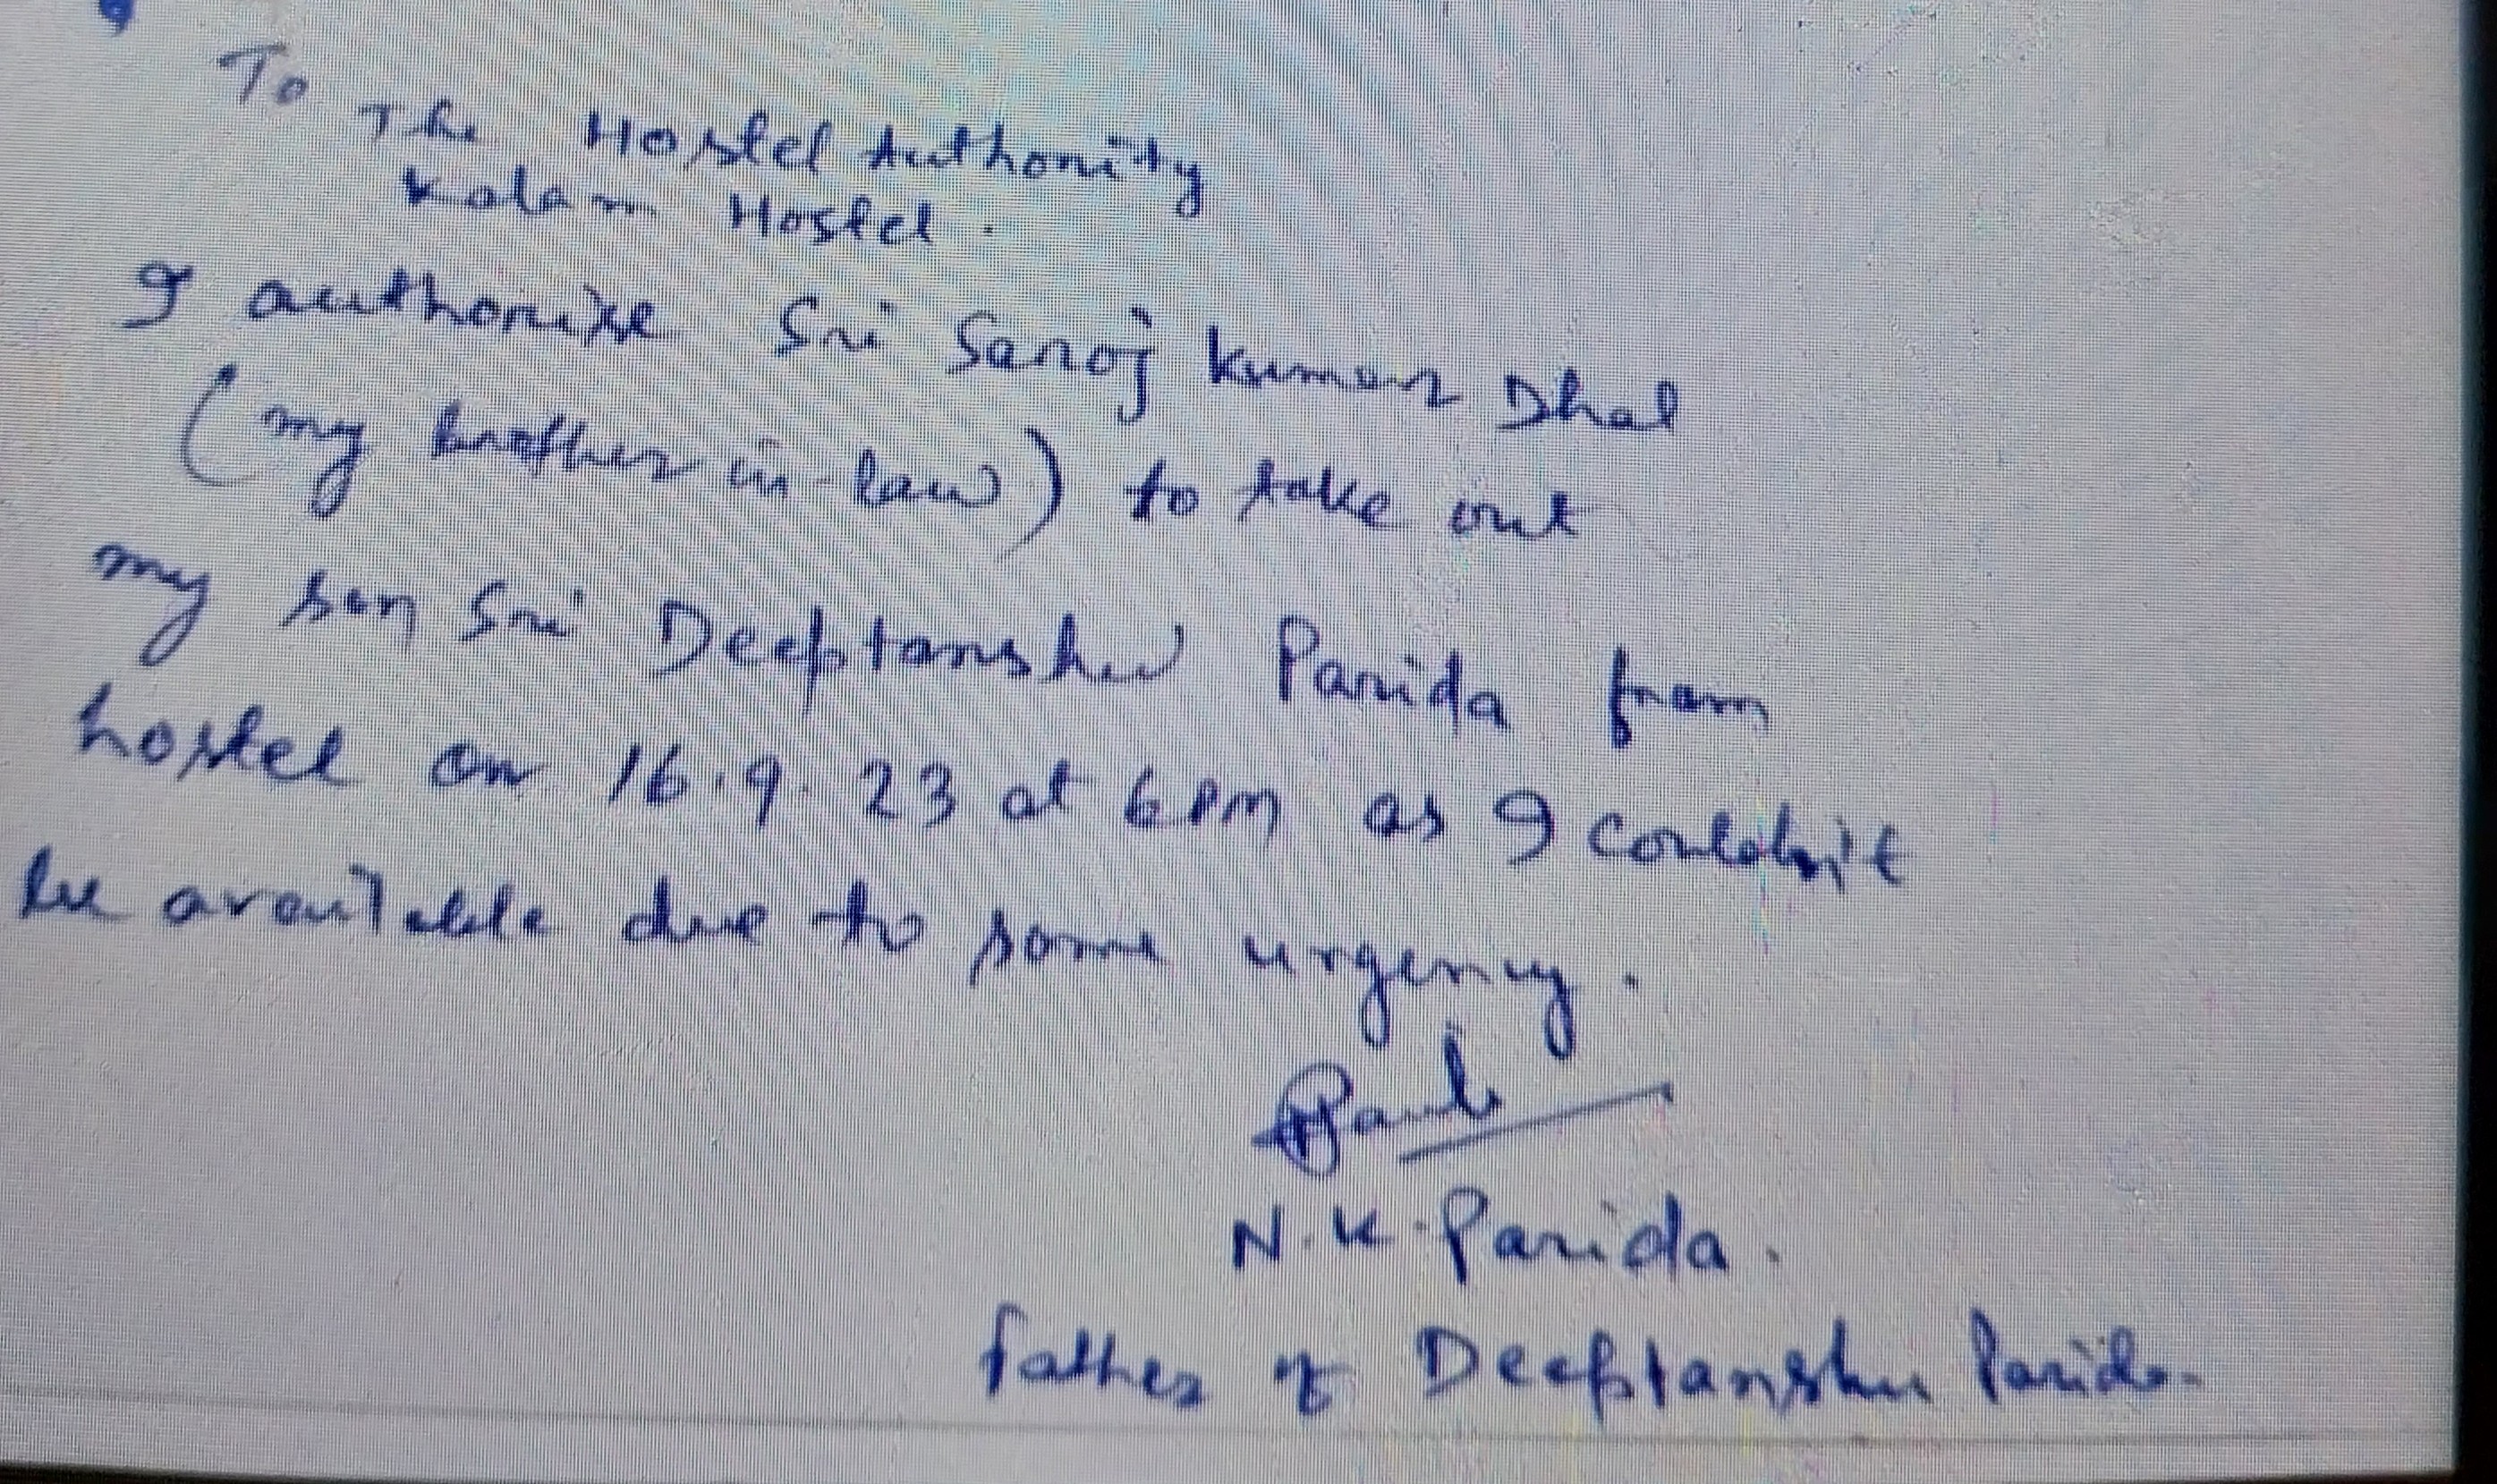 To
The Hostel Authority
Kalam Hostel.
I authorize Sri Sanoj Kumar Dhal
(my brother in-law) to take out
my son Sri Deeptanshu Parida from
hostel on 16.9.23 at 6 PM as I couldn't
be available due to some urgency.
N.K.Parida.
father of Deeptanshu Parida.